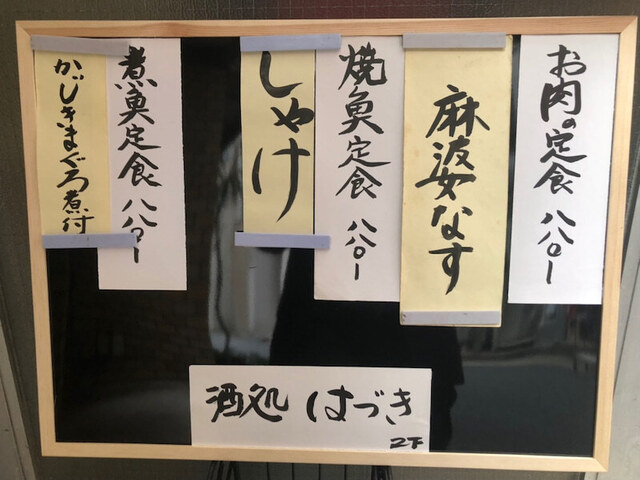 お肉の定食 八八〇ー
麻婆なす
焼魚定食 八八〇ー
しゃけ
煮魚定食 八八〇ー
かじきまぐろ煮付
酒処 はづき
2F